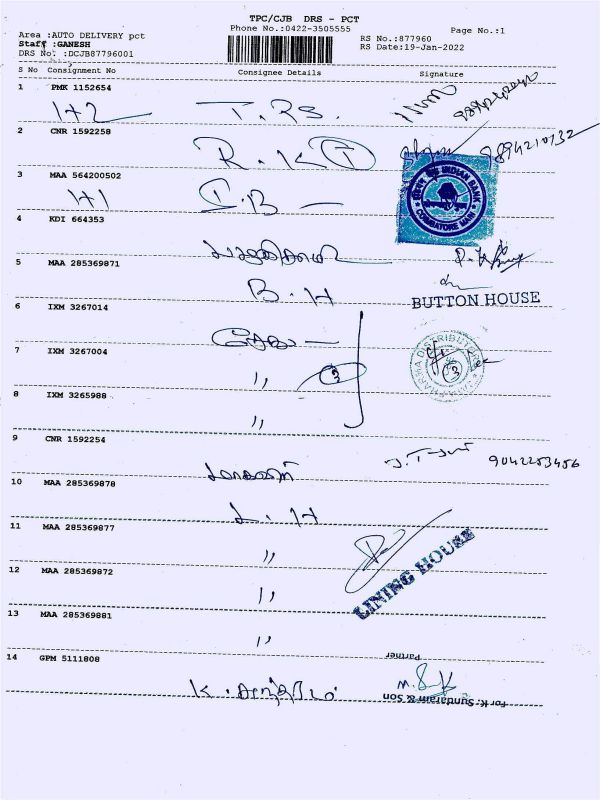 TPC/CJB DRS - PCT
Phone No.:0422-3505555
Page No.:1
Area :AUTO DELIVERY pct
RS No.:877960
Staff :GANESH
RS Date:19-Jan-2022
DRS No. :DCJB87796001
S No Consignment No Consignee Details Signature
1 PMK 1152654
1+2 T.RS.
2 CNR 1592258
R.K 9894210732
3 MAA 564200502
1+1 I.B —
INDIAN BANK
COIMBATORE MAIN
4 KDI 664353
5 MAA 285369871
B.H
BUTTON HOUSE
6 IXM 3267014
7 IXM 3267004
,, 3
PHARMA DISTRIBUTORS
8 IXM 3265988
,,
9 CNR 1592254
9042253456
10 MAA 285369878
L.H
11 MAA 285369877
,,
LINING HOUSE
12 MAA 285369872
,,
13 MAA 285369881
,,
Partner
14 GPM 5111808
K.
For K. Sundaram & Son